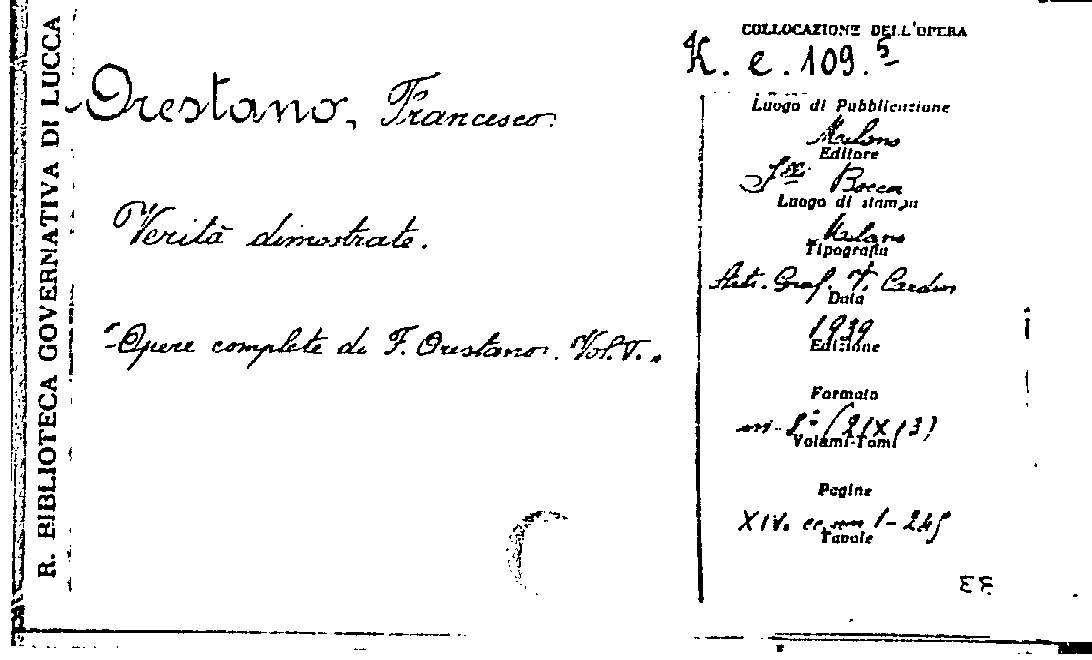 R. BIBLIOTECA GOVERNATIVA DI LUCCA
Orestano, Francesco.
Verità dimostrate.
"Opere complete di F. Orestano. Vol. V."
COLLOCAZIONE DELL'OPERA
K. e. 109.5
Luogo di Pubblicazione
Milano
Editore
F.lli Bocca
Luogo di stampa
Milano
Tipografia
Arti. Graf. F. Cardin
Data
1939
Edizione
Formato
in-8° (21x13)
Volumi-Tomi
Pagine
XIV. 1-245
Tavole